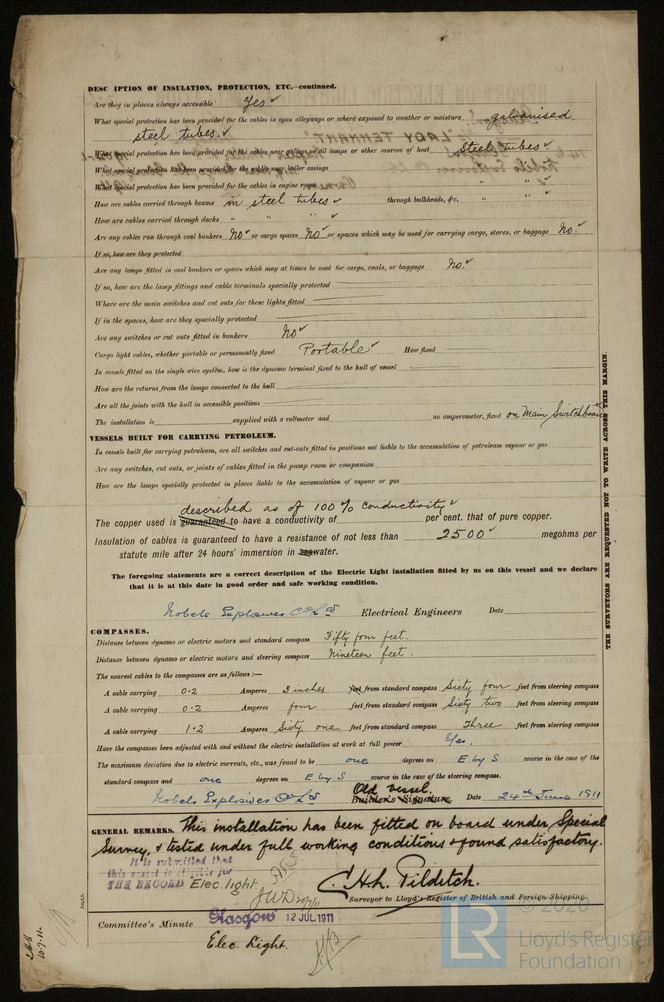 DESC IPTION OF INSULATION, PROTECTION, ETC.—continued.
Are they in places always accessible Yes ✓
What special protection has been provided for the cables in open alleyways or where exposed to weather or moisture galvanised
steel tubes. ✓
What special protection has been provided for the cables near galleys or oil lamps or other sources of heat Steel tubes ✓
What special protection has been provided for the cables near boiler casings " " ✓
What special protection has been provided for the cables in engine room " " ✓
How are cables carried through beams in steel tubes ✓ through bulkheads, &c. " " ✓
How are cables carried through decks " " " ✓
Are any cables run through coal bunkers No ✓ or cargo spaces No ✓ or spaces which may be used for carrying cargo, stores, or baggage No. ✓
If so, how are they protected
Are any lamps fitted in coal bunkers or spaces which may at times be used for cargo, coals, or baggage No. ✓
If so, how are the lamp fittings and cable terminals specially protected
Where are the main switches and cut outs for these lights fitted
If in the spaces, how are they specially protected
Are any switches or cut outs fitted in bunkers No ✓
Cargo light cables, whether portable or permanently fixed Portable ✓ How fixed
In vessels fitted on the single wire system, how is the dynamo terminal fixed to the hull of vessel
How are the returns from the lamps connected to the hull
Are all the joints with the hull in accessible positions
The installation is supplied with a voltmeter and an amperemeter, fixed on Main Switchboard
VESSELS BUILT FOR CARRYING PETROLEUM.
In vessels built for carrying petroleum, are all switches and cut-outs fitted in positions not liable to the accumulation of petroleum vapour or gas
Are any switches, cut outs, or joints of cables fitted in the pump room or companion
How are the lamps specially protected in places liable to the accumulation of vapour or gas
described as of 100 % conductivity ✓
The copper used is guaranteed to have a conductivity of per cent. that of pure copper.
Insulation of cables is guaranteed to have a resistance of not less than 2500 ✓ megohms per
statute mile after 24 hours' immersion in seawater.
The foregoing statements are a correct description of the Electric Light installation fitted by us on this vessel and we declare
that it is at this date in good order and safe working condition.
Nobels Explosives Co Ld Electrical Engineers Date
COMPASSES.
Distance between dynamo or electric motors and standard compass Fifty four feet.
Distance between dynamo or electric motors and steering compass Nineteen feet.
The nearest cables to the compasses are as follows:—
A cable carrying 0.2 Amperes 3 inches feet from standard compass Sixty four feet from steering compass
A cable carrying 0.2 Amperes four feet from standard compass Sixty two feet from steering compass
A cable carrying 1.2 Amperes Sixty one feet from standard compass Three feet from steering compass
Have the compasses been adjusted with and without the electric installation at work at full power Yes.
The maximum deviation due to electric currents, etc., was found to be one degrees on E by S course in the case of the
standard compass and one degrees on E by S course in the case of the steering compass.
Old Vessel.
Nobels Explosives Co Ld Builder's Signature. Date 24th June 1911
GENERAL REMARKS. This installation has been fitted on board under Special
Survey, & tested under full working conditions & found satisfactory.
It is submitted that
this vessel is eligible for
THE RECORD Elec. light
JWD
C. H. Pilditch.
Surveyor to Lloyd's Register of British and Foreign Shipping.
Committee's Minute Glasgow 12 JUL 1911
Elec. Light.
THE SURVEYORS ARE REQUESTED NOT TO WRITE ACROSS THIS MARGIN.
© 2020
LR
Lloyd's Register
Foundation